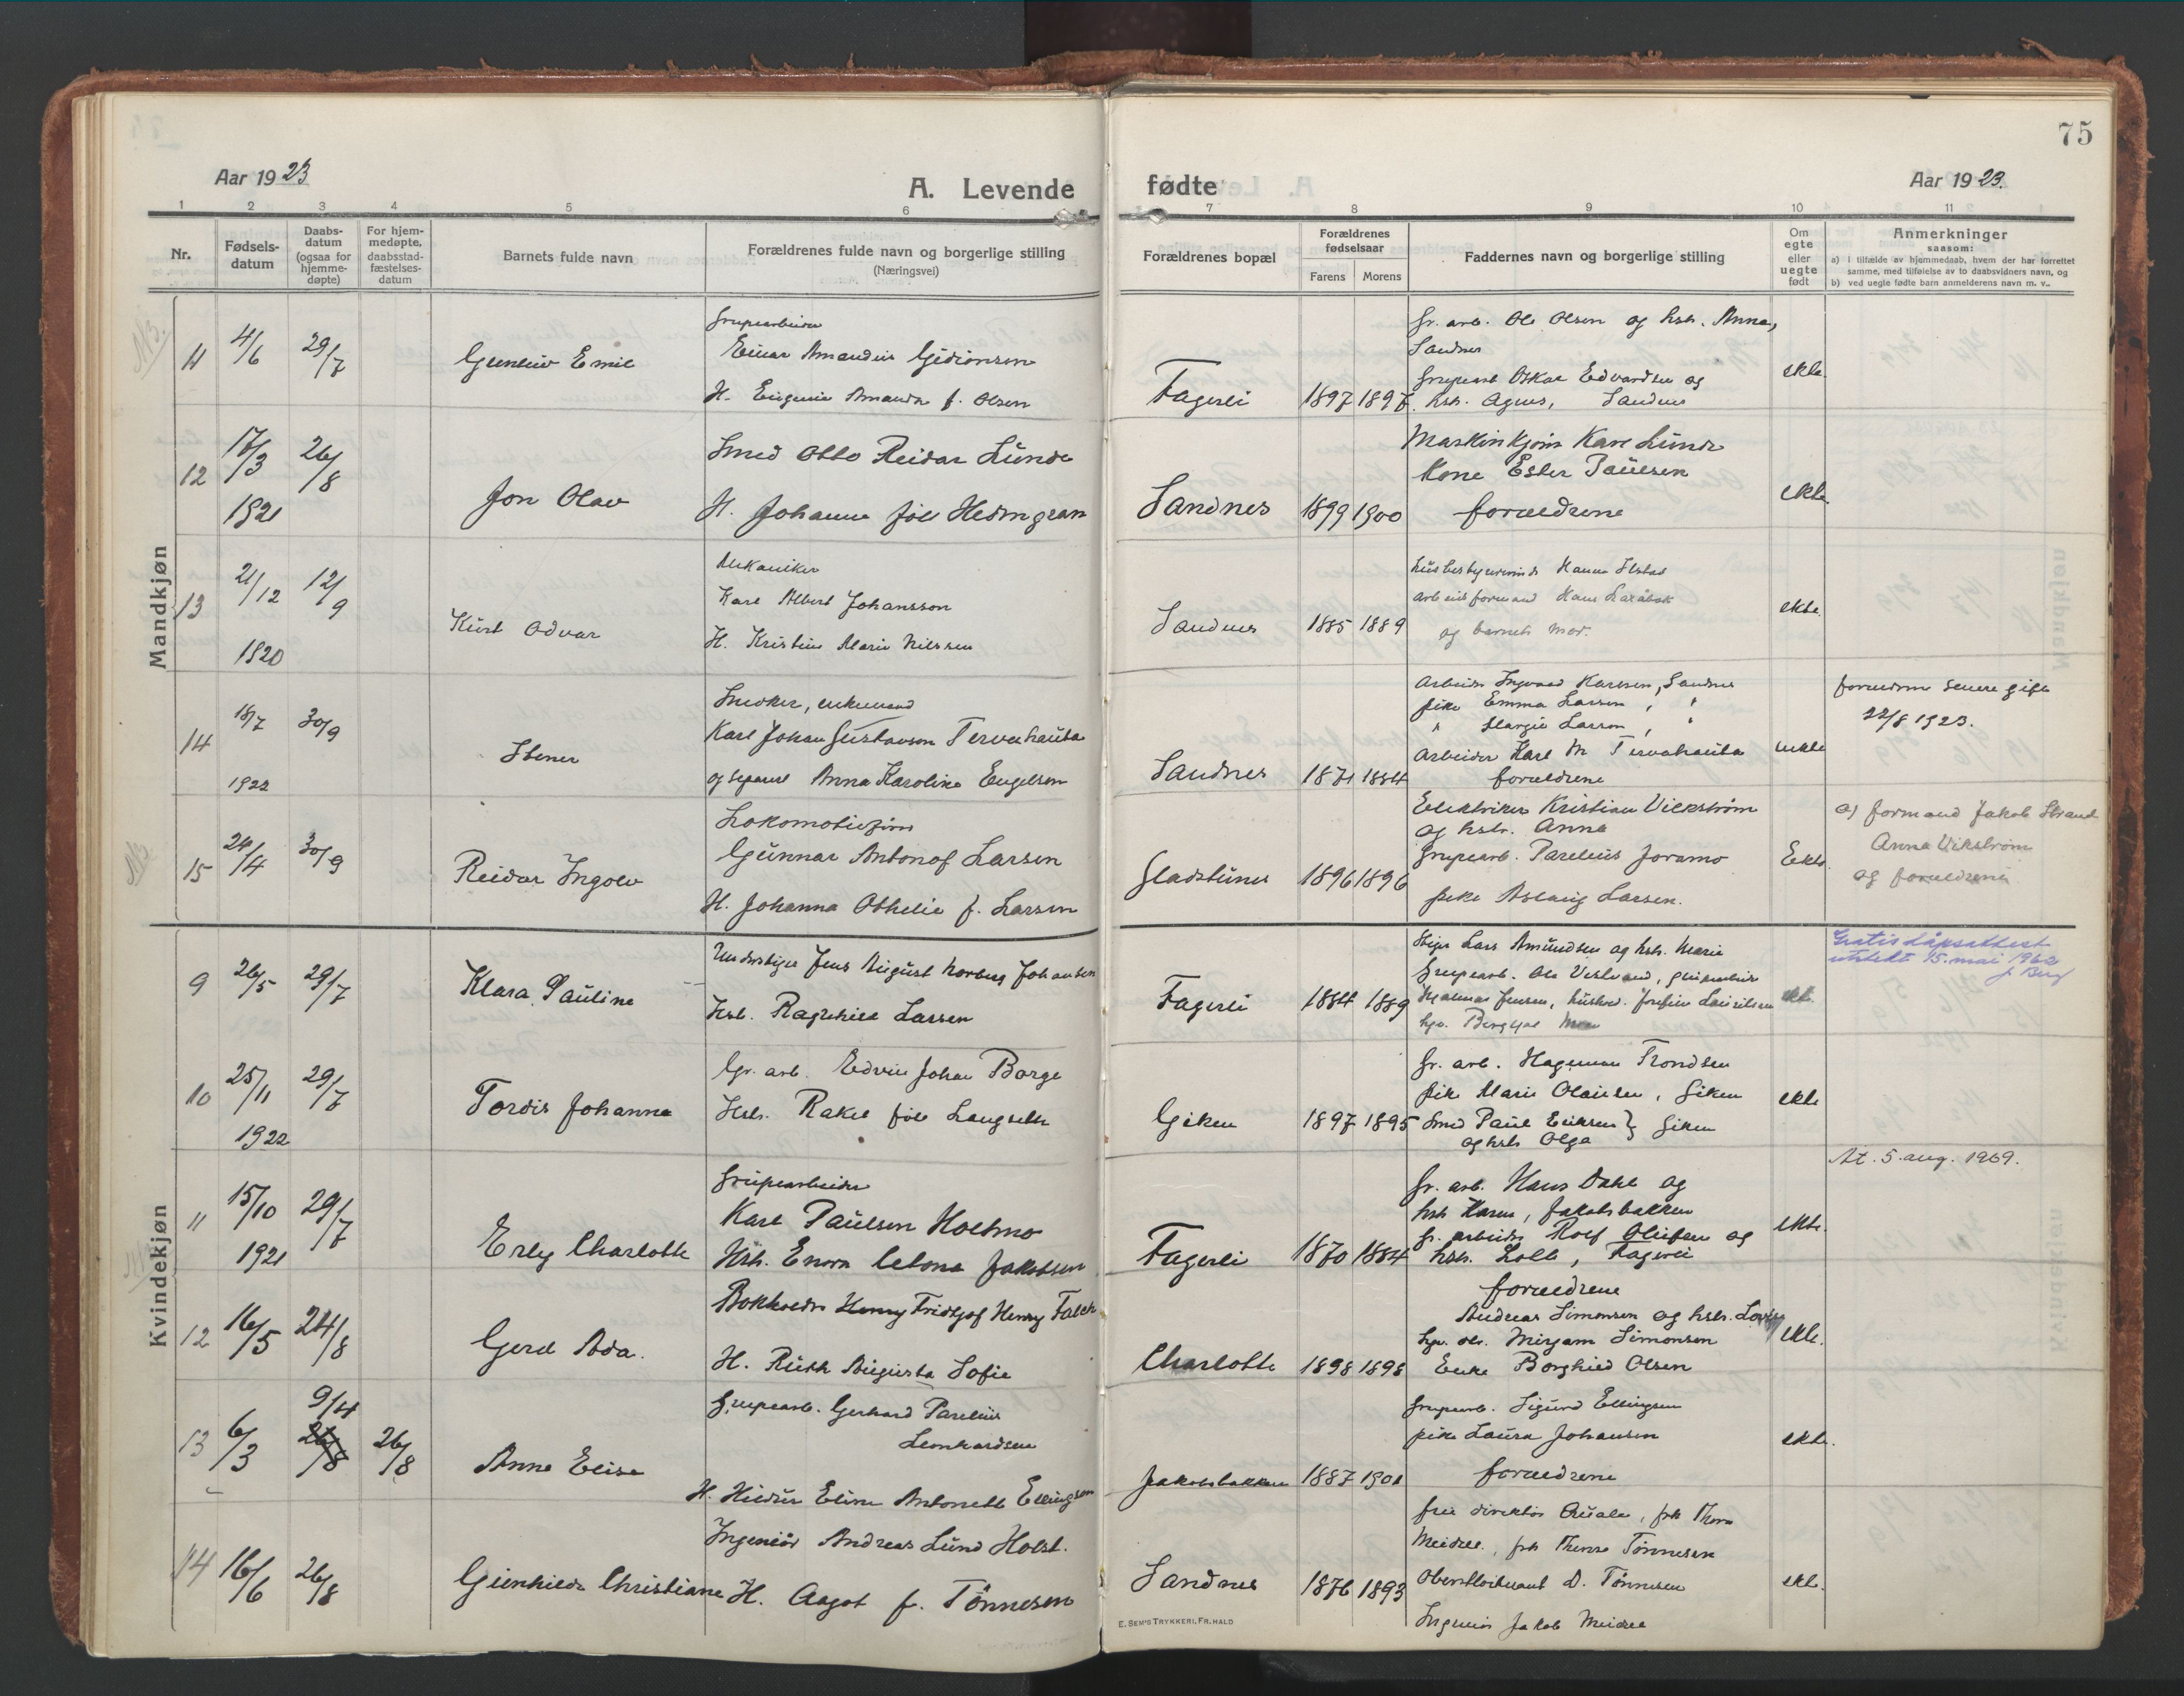 75
Aar 1923
A. Levende
fødte
Aar 1923.
1 2 3 4 5 6 7 8 9 10 11
Nr.
Fødsels-
datum
Daabs-
datum
(ogsaa for
hjemme-
døpte)
For hjem-
medøpte,
daabsstad-
fæstelses-
datum
Barnets fulde navn
Forældrenes fulde navn og borgerlige stilling
(Næringsvei)
Forældrenes bopæl
Forældrenes
fødselsaar
Farens Morens
Faddernes navn og borgerlige stilling
Om
egte
eller
uegte
født
Anmerkninger
saasom:
a) i tilfælde av hjemmedaab, hvem der har forrettet
samme, med tilføielse av to daabsvidners navn, og
b) ved uegte fødte barn anmelderens navn m. v..
Mandkjøn
11 4/6 29/7 Emil
Grupearbeider
Einar Amandus Gidionsen
H. Eugenie Amanda f. Olsen
Fagerli 1897 1897
Gr. arb. Ole Olsen og hstr. Anna,
Sandnes
Grupearb Oskar Edvardsen og
hstr. Agnes, Sandnes
ekte.
12 17/3 1921 26/8 Jon Olav
Smed Otto Reidar Lunde
H. Johanne föd Hedmgran
Sandnes 1899 1900
Maskinkjøre Karl Lunde
Kone Ester Paulsen
forældrene
ekte.
13 21/12 1920 12/9 Kurt Odvar
Mekaniker
Karl Albert Johansson
H. Kristine Marie Nilssen
Sandnes 1885 1889
Hanna
arbeidsformand Hans
og barnets mor.
ekte.
14 18/7 1922 30/9 Stener
Snekker, enkemand
Karl Johan Gustavson Tervahauta
og separert Anna Karoline Engelsen
Sandnes 1871 1884
Arbeider Ingvard Karlsen, Sandnes
pike Emma Larsen, "
" Margit Larsen, "
Arbeider Karl M Tervahauta
forældrene
uekte
forældrene senere gift
22/8 1923.
15 24/4 30/9 Reidar Ingolv
Gunnar Antonof Larsen
H. Johanna Othelie f. Larsen
Gladstunes 1896 1896
Elektriker Kristian Vickstrøm
og hstr. Anna
Grupearb. Parelius Joramo
pike Aslaug Larsen.
Ekte.
a) formand Jakob Strand
Anna Vikstrøm
og forældrene
Kvindekjøn
9 26/5 29/7 Klara Pauline
Understiger Jens August Johansen
Hstr. Ragnhild Larsen
Fagerli 1884 1889
Stiger Lars Amundsen og hstr. Marie
Grupearb. Ole
Hjalmar Jensen, Josefine
ekte.
Gratis dåpsattest
utstedt 15. mai 1962
J. Berg
10 25/11 1922 29/7 Tordis Johanna
Gr. arb. Edvin Johan Borge
Hstr. Rakel föd Langseth
Giken 1897 1895
Gr. arb. Hageman Trondsen
pike Marie Olausen, Giken
Smed Paul Eriksen } Giken
og hstr Olga
ekte
11 15/10 1921 29/7 Erly Charlotte
Grupearbeider
Karl Paulsen Holtmo
Hstr. Enora Jakobsen
Fagerli 1870 1884
Gr. arb. Hans Dahl og
hstr Karen, Jakobsbakken
Gr. arbeider Rolf Olufsen og
hstr. Lolla, Fagerli
forældrene
ekte.
At. 5. aug. 1969.
12 16/5 24/8 Gerd Ada.
Bokholder Henry Fridtjof Henry Falch
H. Ruth Augusta Sofie
Charlotte 1898 1898
Andreas Simonsen og hstr. Lovise
Mirjam Simonsen
Enke Borghild Olsen
ekte.
13 6/3 9/4 26/8 26/8 Anne Elise
Grupearb. Gerhard Parelius
Leonhardsen
H. Hildur Eline Antonette Ellingsen
Jakobsbakken 1887 1901
Grupearb. Sigurd Ellingsen
pike Laura Johansen
forældrene
ekte.
14 16/6 26/8 Gunhilde Christiane
Ingeniør Andreas Lund Holst.
H. Aagot f. Tönnesen
Sandnes 1876 1893
frue direktør Quale, frk Thora
Meidell, frk Tönnesen
Oberstløitnant D. Tönnesen
Ingeniør Jakob Meidell
ekte.
E. SEM'S TRYKKERI, FR.HALD